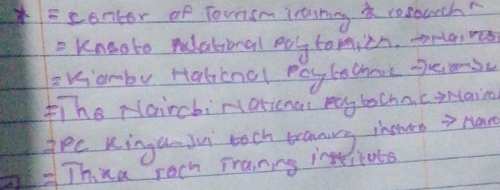 * = Center of Tourism training & research
= Kasoto National Polytomich. →
= Kiambu National Polytechnic → Kiambu
= The Nairobi National Polytechnic →
= PC Kinyanjui tech training insture →
= Thika Tech Training institute